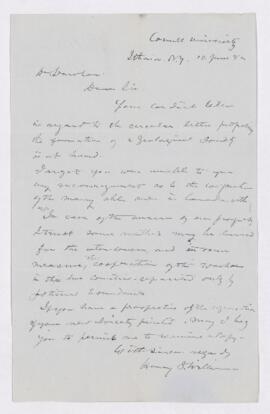 Cornell University
Ithaca, N.Y. 10 June 82
Dr Dawson
Dear Sir
Your cordial letter
in regard to the circular letter proposing
the formation of a Geological Society
is at hand.
I regret you were unable to give
any encouragement as to the cooperation
of the many able men in Canada with
us.
In case of the success of our project
I trust some method may be devised
for the interchange, and in some
measure, the cooperation of the workers
in the two countries separated only by
political boundaries.
If you have a prospectus of the organization
of your new Society printed, may I beg
you to permit me to receive a copy.
With sincere regards
Henry S. Williams